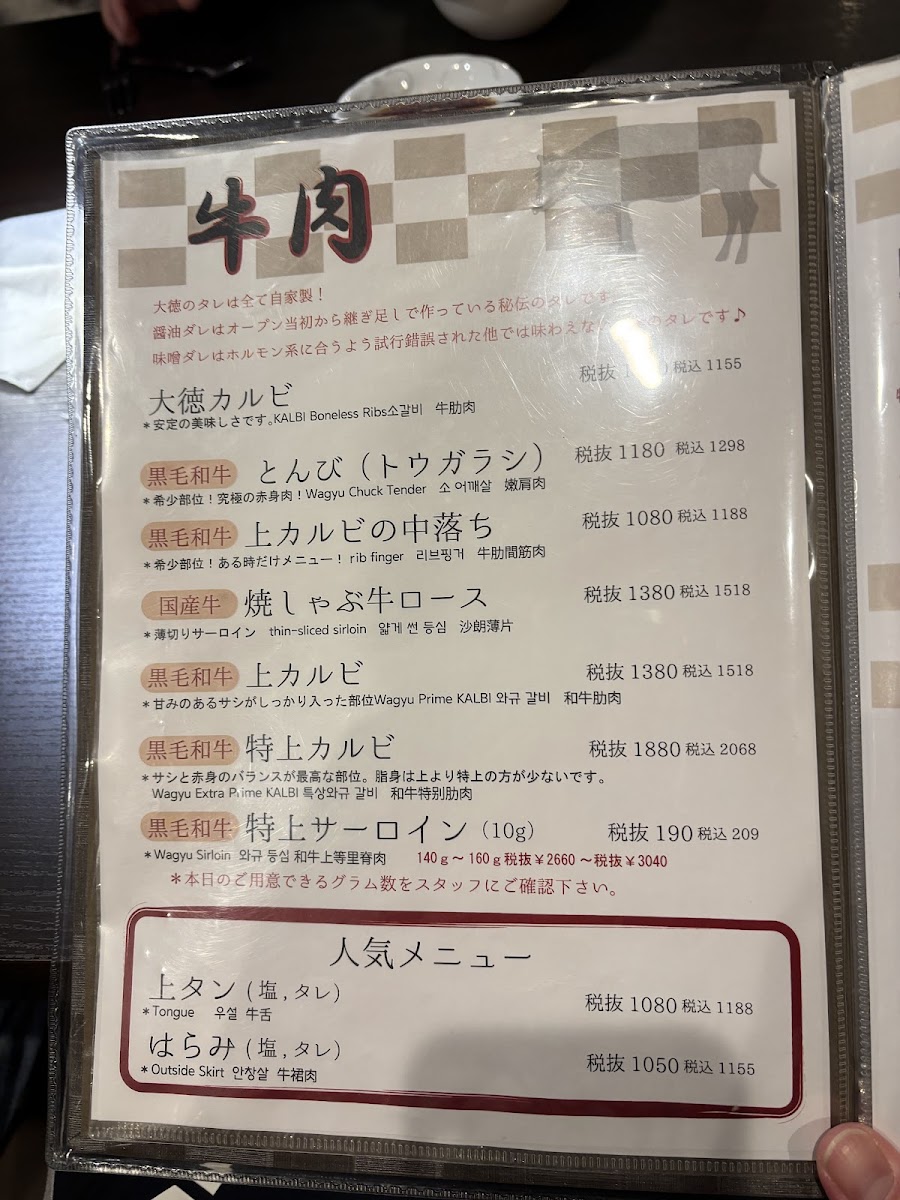 牛肉
大徳のタレは全て自家製！
醤油ダレはオープン当初から継ぎ足しで作っている秘伝のタレです
味噌ダレはホルモン系に合うよう試行錯誤された他では味わえな のタレです♪
大徳カルビ 税抜 税込 1155
＊安定の美味しさです。KALBI Boneless Ribs소갈비 牛肋肉
黒毛和牛 とんび（トウガラシ） 税抜 1180 税込 1298
＊希少部位！究極の赤身肉！Wagyu Chuck Tender 소 어깨살 嫩肩肉
黒毛和牛 上カルビの中落ち 税抜 1080 税込 1188
＊希少部位！ある時だけメニュー！ rib finger 리브핑거 牛肋間筋肉
国産牛 焼しゃぶ牛ロース 税抜 1380 税込 1518
＊薄切りサーロイン thin-sliced sirloin 얇게 썬 등심 沙朗薄片
黒毛和牛 上カルビ 税抜 1380 税込 1518
＊甘みのあるサシがしっかり入った部位Wagyu Prime KALBI 와규 갈비 和牛肋肉
黒毛和牛 特上カルビ 税抜 1880 税込 2068
＊サシと赤身のバランスが最高な部位。脂身は上より特上の方が少ないです。
Wagyu Extra Prime KALBI 특상와규 갈비 和牛特别肋肉
黒毛和牛 特上サーロイン（10g） 税抜 190 税込 209
＊Wagyu Sirloin 와규 등심 和牛上等里脊肉 140ｇ～160ｇ税抜￥2660～税抜￥3040
＊本日のご用意できるグラム数をスタッフにご確認下さい。
人気メニュー
上タン (塩,タレ) 税抜 1080 税込 1188
＊Tongue 우설 牛舌
はらみ (塩,タレ) 税抜 1050 税込 1155
＊Outside Skirt 안창살 牛裙肉